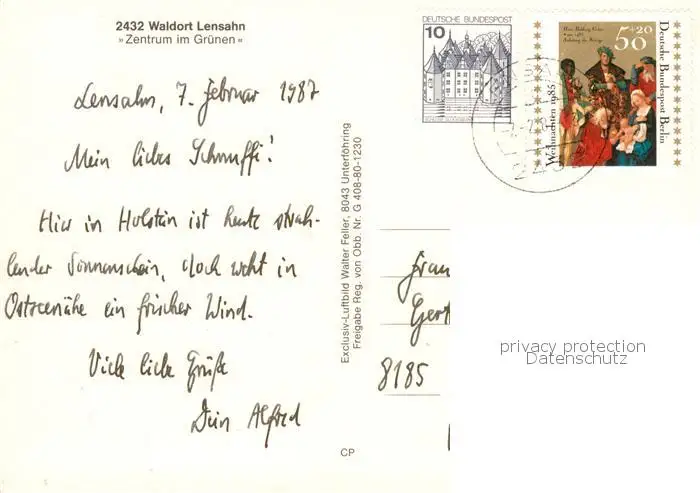 2432 Waldort Lensahn
»Zentrum im Grünen«
Lensahn, 7. Februar 1987
Mein liebes Schnuffi!
Hier in Holstein ist heute strah-
lender Sonnenschein, doch weht in
Ostseenähe ein frischer Wind.
Viele liebe Grüße
Dein Alfred
Exclusiv-Luftbild Walter Feller, 8043 Unterföhring
Freigabe Reg. von Obb. Nr. G 408-80-1230
CP
DEUTSCHE BUNDESPOST
10
50+20
Weihnachten 1985
Deutsche Bundespost Berlin
Frau
Gert
8185
privacy protection
Datenschutz